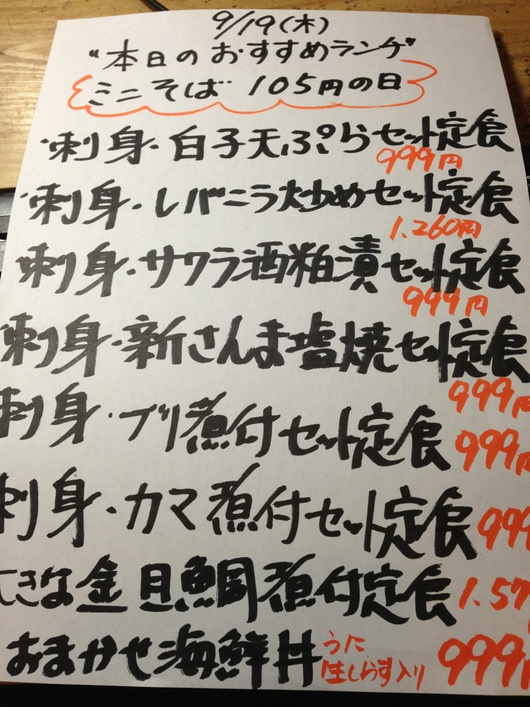 9/19(木)
"本日のおすすめランチ"
ミニそば 105円の日
・刺身・白子天ぷらセット定食
999円
・刺身・レバニラ炒めセット定食
1.260円
・刺身・サワラ酒粕漬セット定食
999円
刺身・新さんま塩焼セット定食
999円
刺身・ブリ煮付セット定食 999円
刺身・カマ煮付セット定食 999
大きな金目鯛煮付定食 1.57
おまかせ海鮮丼 うに 生しらす入り 999円